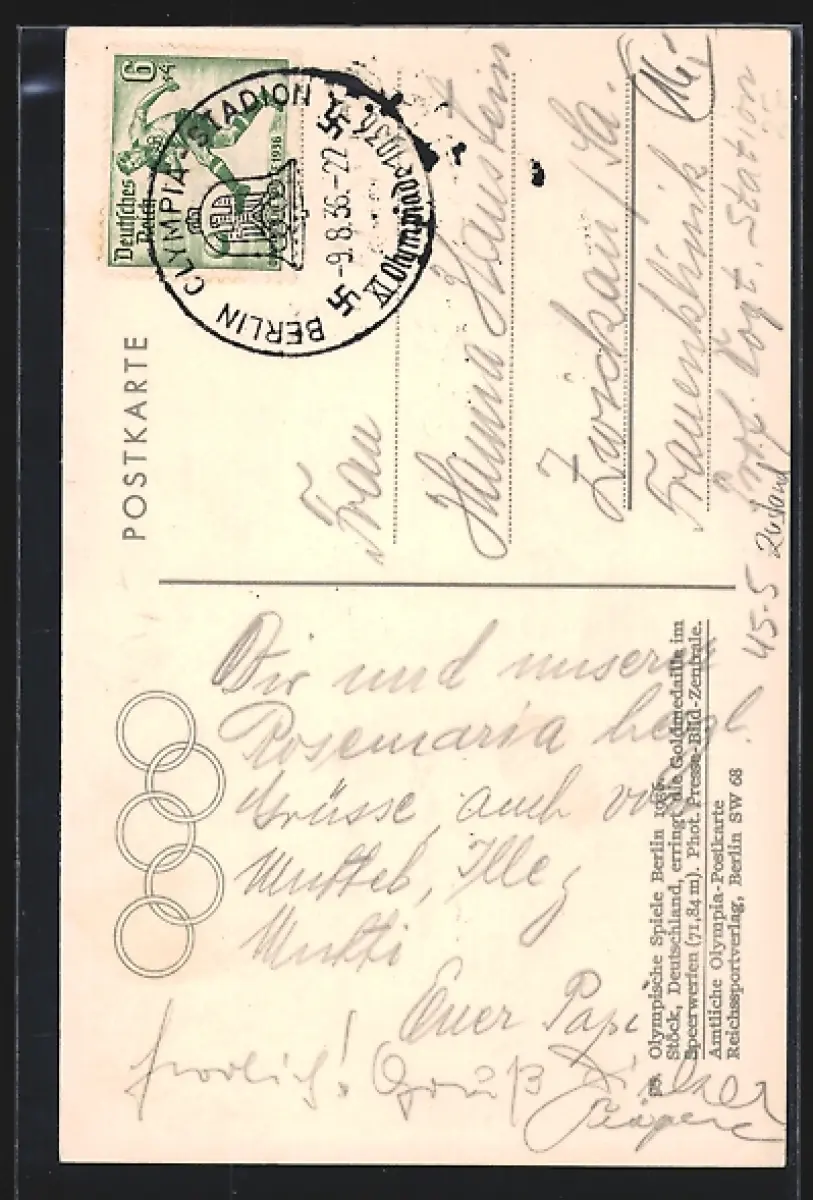 POSTKARTE
6+4
Deutsches
Reich
1936
BERLIN OLYMPIA-STADION
-9.8.36.-22
XI. Olympiade 1936
Frau
Hanna Haustein
Zwickau / Sa.
Frauenklinik
Prof. Vogt. Station
45-5 Zustand
Dir und unsere
Rosemaria herzl.
Grüsse, auch von
Mutti
Euer Papi
Gruß
Olympische Spiele Berlin 1936.
Stöck, Deutschland, erringt die Goldmedaille im
Speerwerfen (71,84 m). Phot. Presse-Bild-Zentrale.
Amtliche Olympia-Postkarte
Reichssportverlag, Berlin SW 68